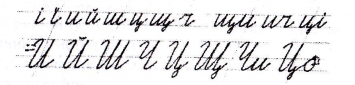 і ї и й ш ц щ ч щи ич щі
И Й Ш Ч Ц Щ Чи Цо